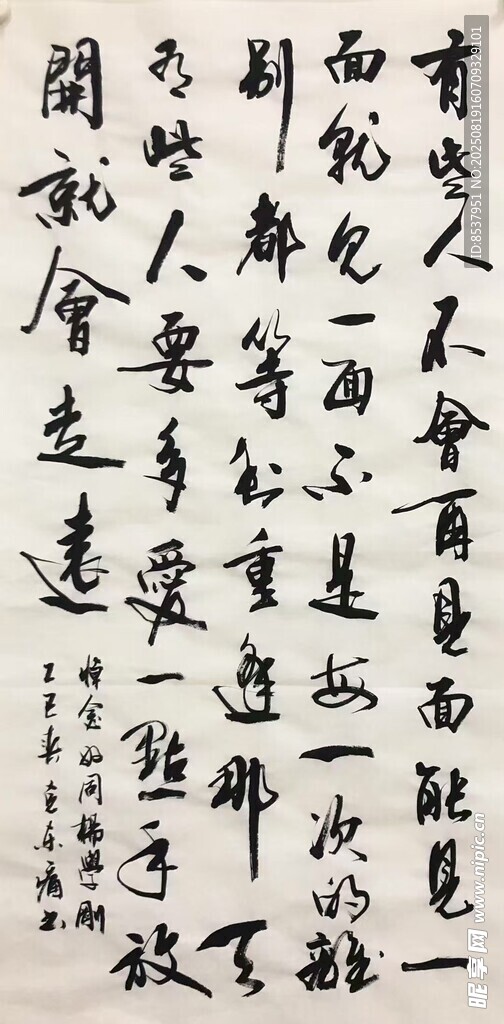 有些人不會再見面能見一
面就见一面不是每一次的離
別都等到重逢那天
有些人要多愛一點手放
開就會走遠
悼念好同楊學剛
乙巳春東痛書
ID:8537951 NO:20250819160709329101
昵享网 www.nipic.cn